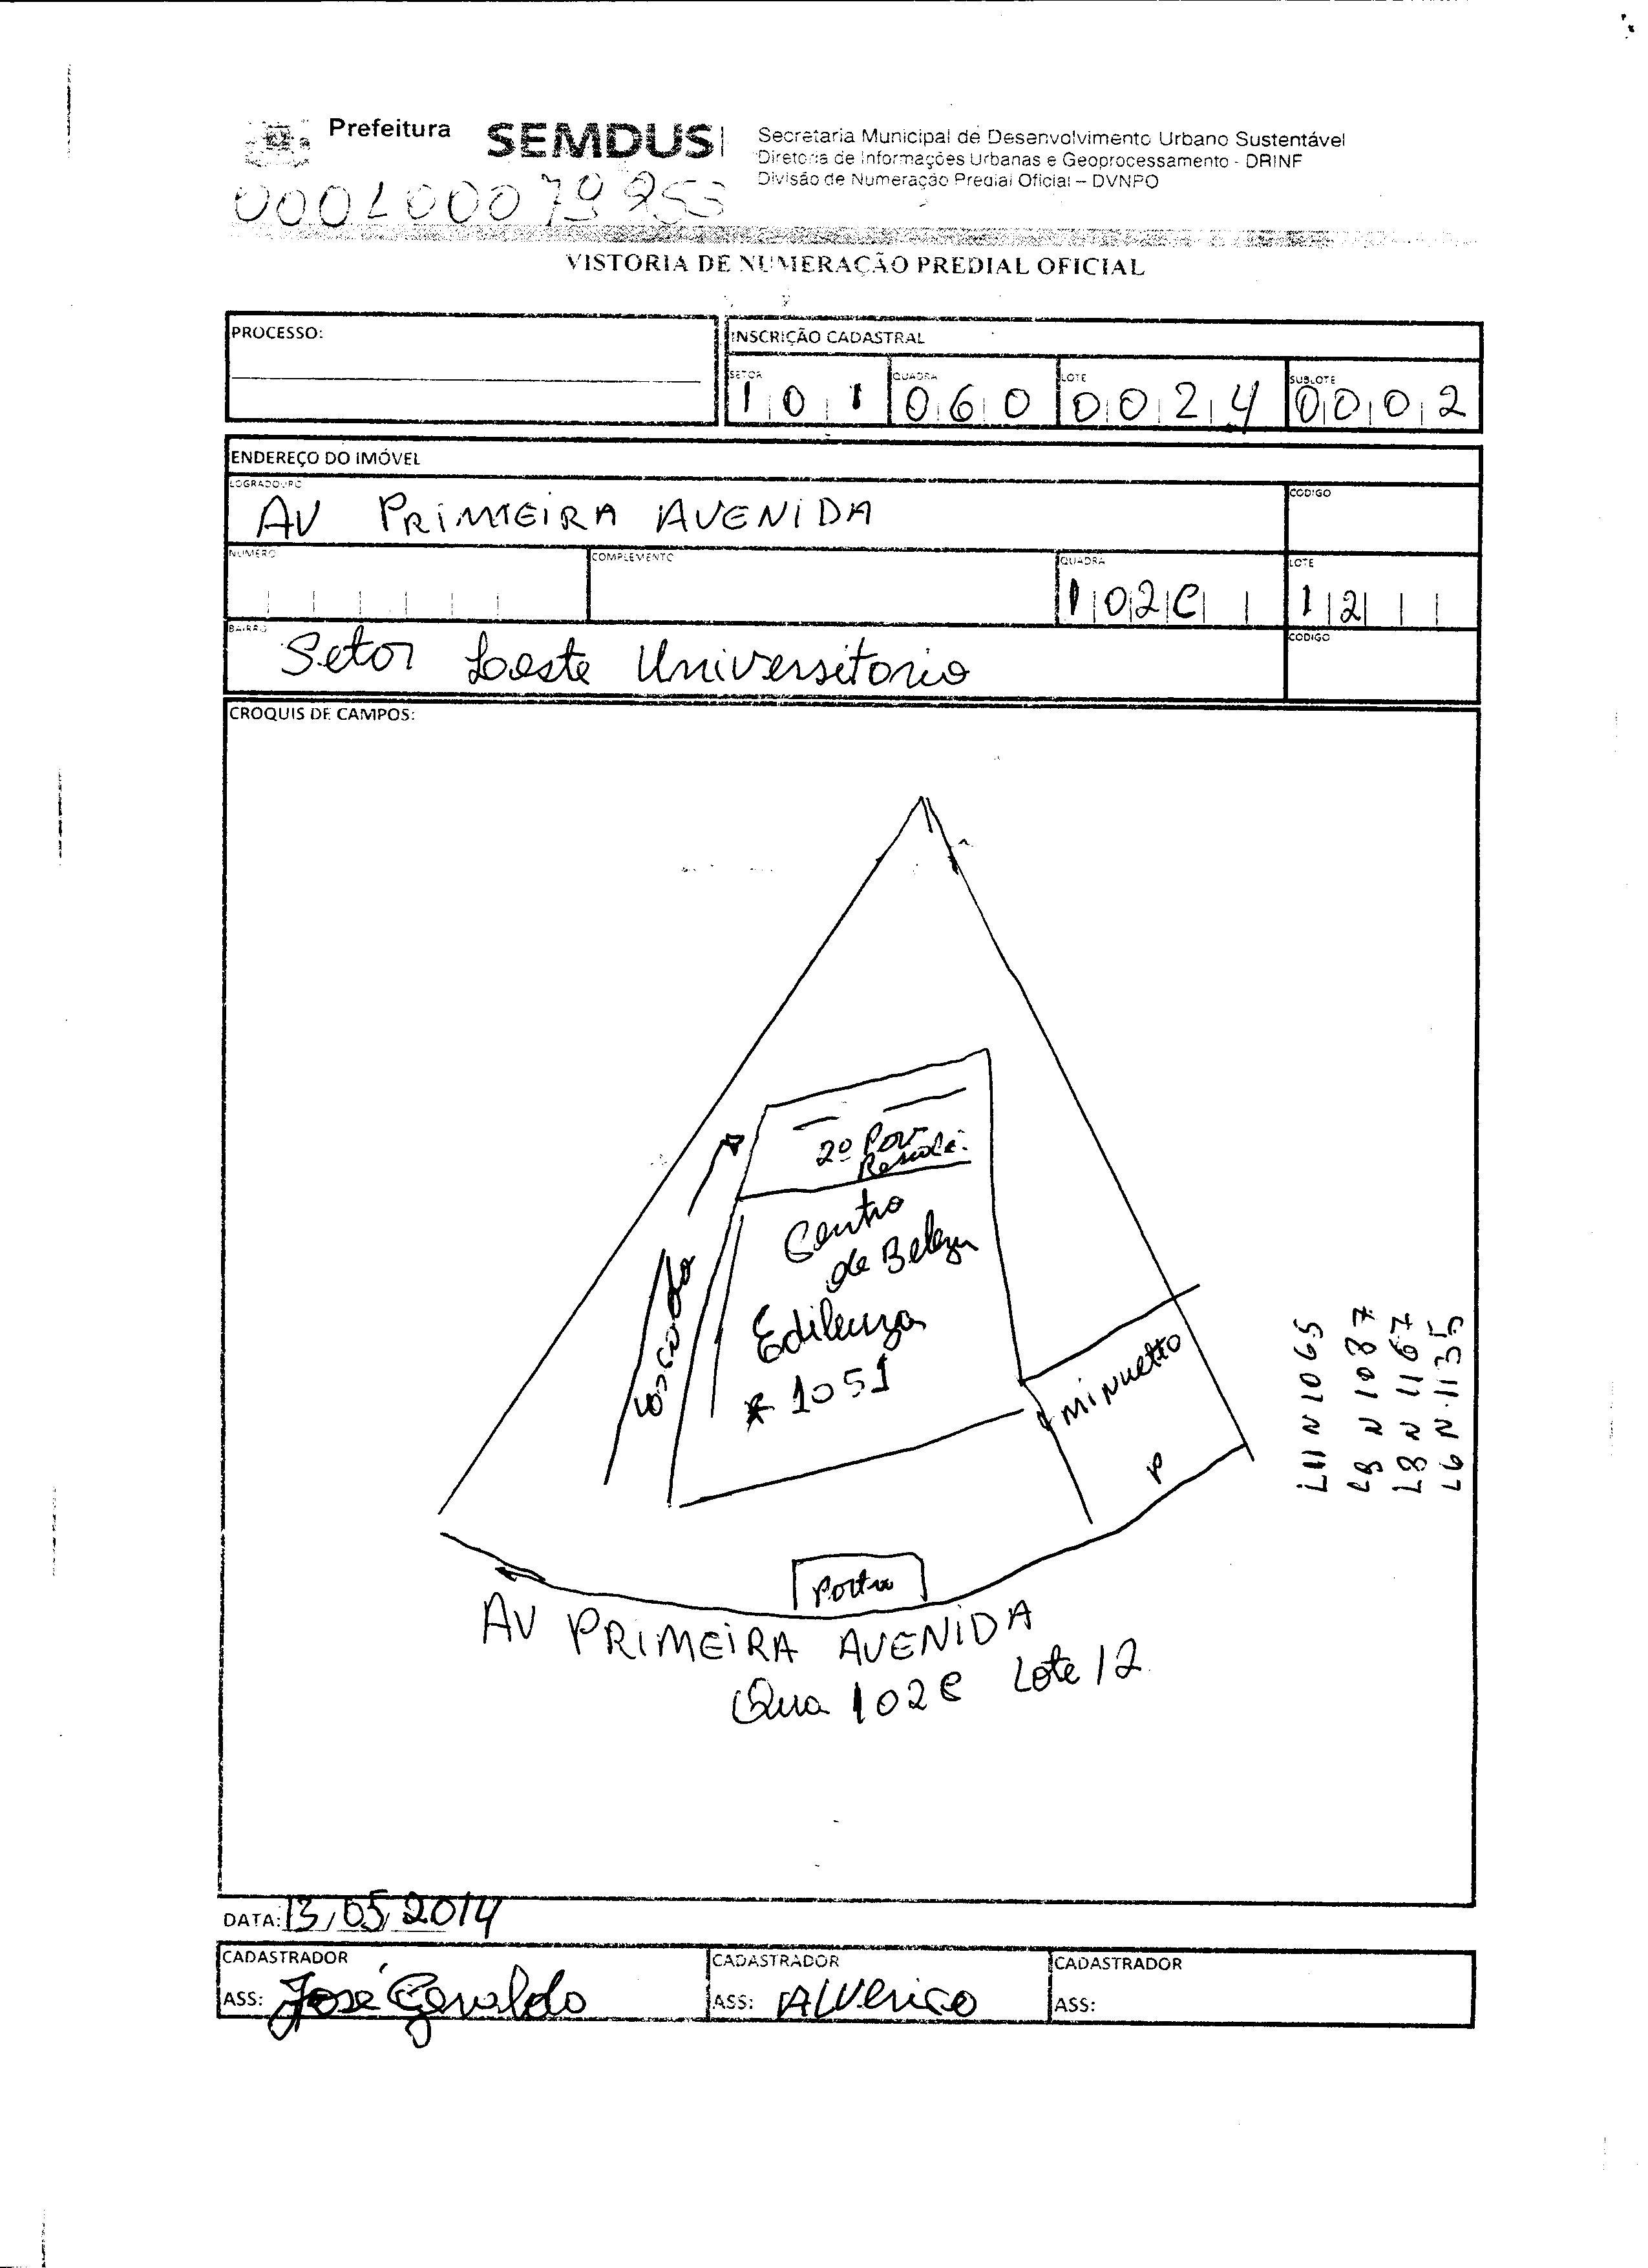 Prefeitura SEMDUS
Secretaria Municipal de Desenvolvimento Urbano Sustentável
Diretoria de Informações Urbanas e Geoprocessamento - DRINF
Divisão de Numeração Predial Oficial – DVNPO
VISTORIA DE NUMERAÇÃO PREDIAL OFICIAL
PROCESSO:
INSCRIÇÃO CADASTRAL
SETOR QUADRA LOTE SUBLOTE
101 060 0024 0002
ENDEREÇO DO IMÓVEL
LOGRADOURO CODIGO
AV PRIMEIRA AVENIDA
NUMERO COMPLEMENTO QUADRA LOTE
102C 12
BAIRRO CODIGO
Setor Leste Universitorio
CROQUIS DE CAMPOS:
2º Pav
Centro
de Beleza
Edileuza
* 1051
escada
MiNuetto
P
L11 N 1065
L9 N 1087
L8 N 1167
L6 N. 1135
Porta
AV PRIMEIRA AVENIDA
Qua 102C Lote 12
DATA: 13/05/2014
CADASTRADOR CADASTRADOR CADASTRADOR
ASS: José Geraldo ASS: Alverico ASS: